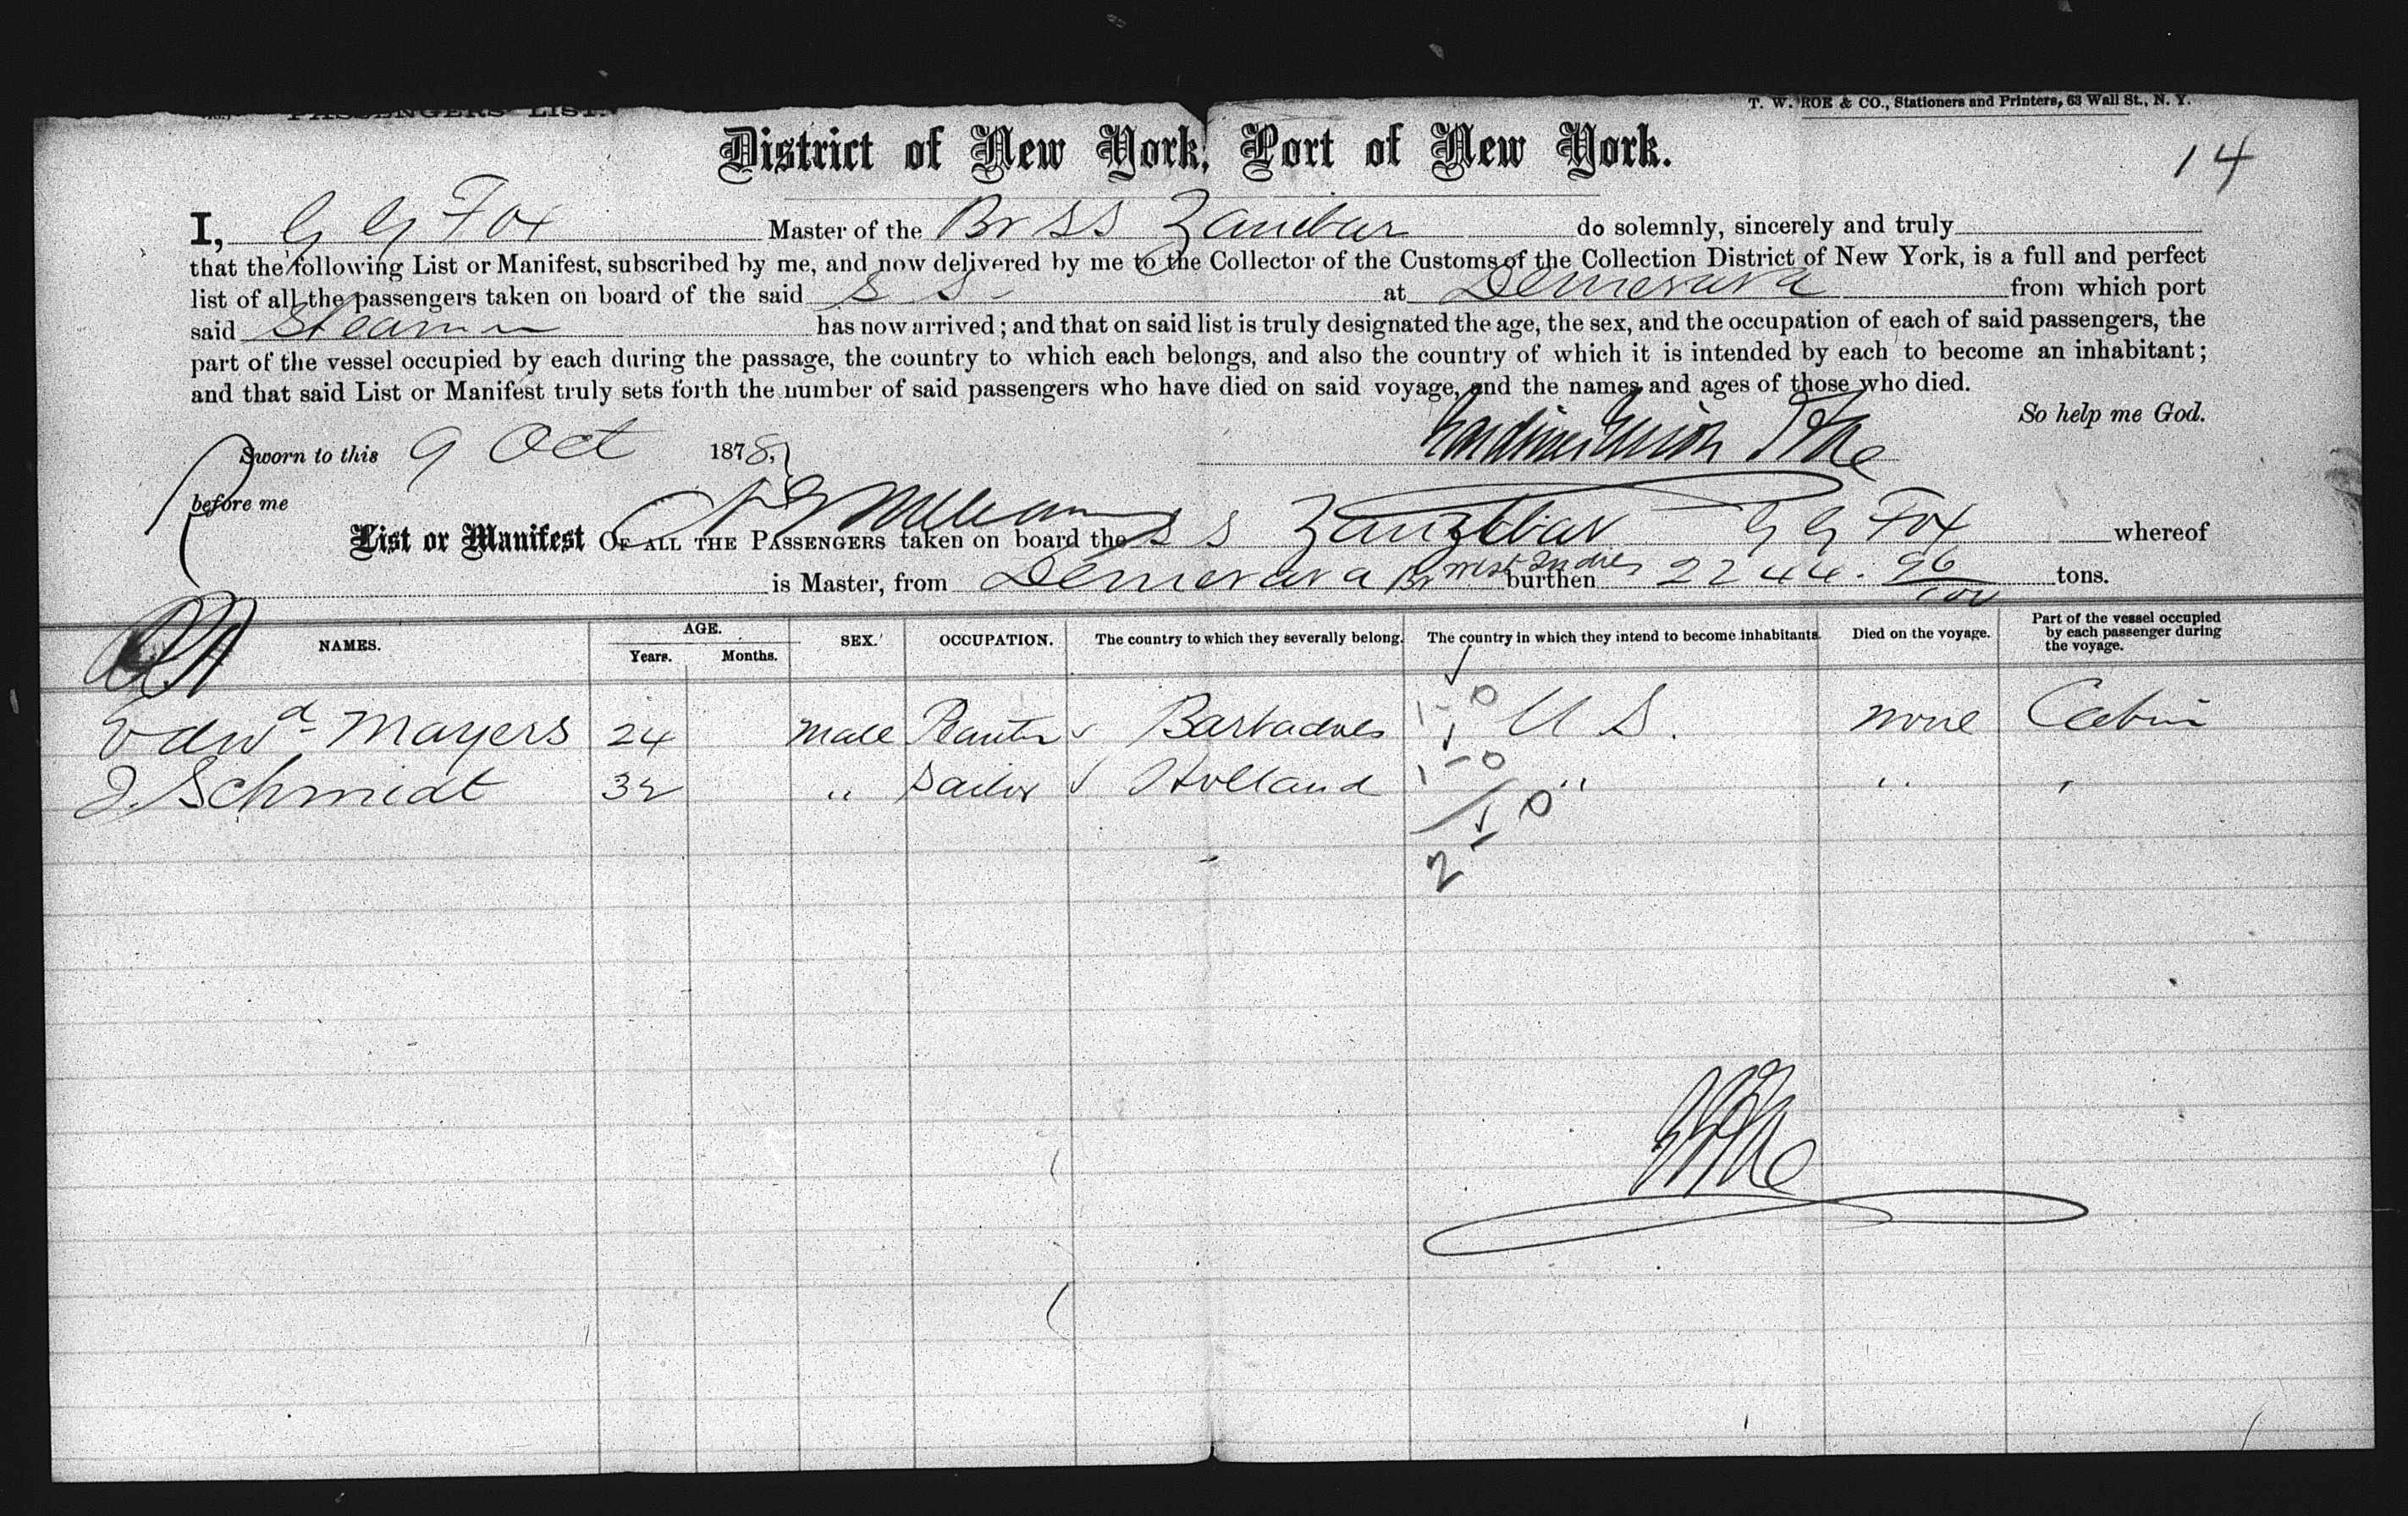 PASSENGERS' LIST.
T. W. ROE & CO., Stationers and Printers, 63 Wall St., N. Y.
District of New York, Port of New York.
14
I, G G Fox Master of the Br SS Zanzibar do solemnly, sincerely and truly
that the following List or Manifest, subscribed by me, and now delivered by me to the Collector of the Customs of the Collection District of New York, is a full and perfect
list of all the passengers taken on board of the said S S at Demerara from which port
said Steamer has now arrived; and that on said list is truly designated the age, the sex, and the occupation of each of said passengers, the
part of the vessel occupied by each during the passage, the country to which each belongs, and also the country of which it is intended by each to become an inhabitant;
and that said List or Manifest truly sets forth the number of said passengers who have died on said voyage, and the names and ages of those who died.
So help me God.
Sworn to this 9 Oct 1878,
before me
List or Manifest OF ALL THE PASSENGERS taken on board the S S Zanzibar G G Fox whereof
is Master, from Demerara Br West Indies burthen 2244. 96/100 tons.
NAMES. AGE. Years. Months. SEX. OCCUPATION. The country to which they severally belong. The country in which they intend to become inhabitants. Died on the voyage. Part of the vessel occupied by each passenger during the voyage.
Edwd Mayers 24 Male Planter Barbadoes 1-0 U S. none Cabin
J. Schmidt 32 " Sailor Holland 1-0 " " "
1 0
2